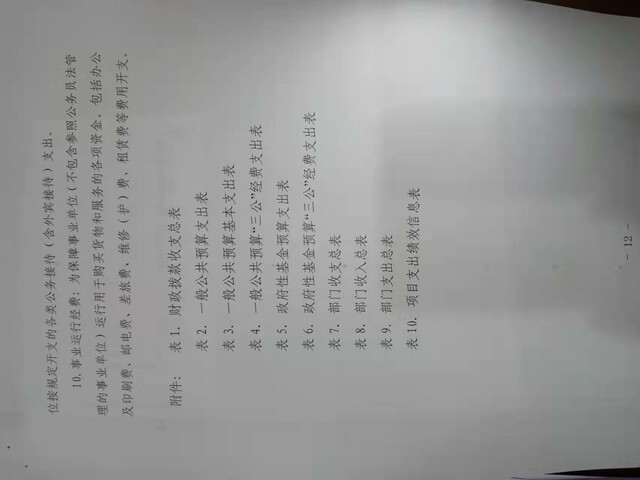 位按规定开支的各类公务接待（含外宾接待）支出。
10.事业运行经费：为保障事业单位（不包含参照公务员法管
理的事业单位）运行用于购买货物和服务的各项资金。包括办公
及印刷费、邮电费、差旅费、维修（护）费、租赁费等费用开支。
附件：
表 1．财政拨款收支总表
表 2．一般公共预算支出表
表 3．一般公共预算基本支出表
表 4．一般公共预算“三公”经费支出表
表 5．政府性基金预算支出表
表 6．政府性基金预算“三公”经费支出表
表 7．部门收支总表
表 8．部门收入总表
表 9．部门支出总表
表 10．项目支出绩效信息表
- 12 -